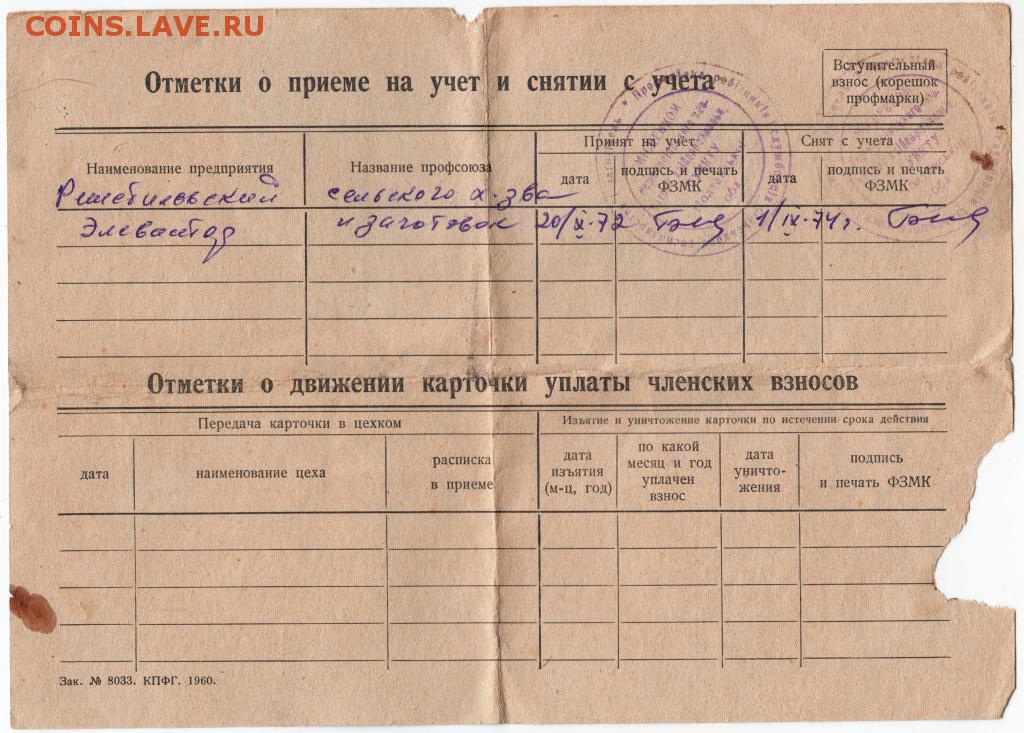 COINS.LAVE.RU
Отметки о приеме на учет и снятии с учета
Вступительный
взнос (корешок
профмарки)
Наименование предприятия
Название профсоюза
Принят на учет
Снят с учета
дата
подпись и печать
ФЗМК
дата
подпись и печать
ФЗМК
сельского х-зва
Элеватор
и заготовок
20/X-72
1/IX-74 г.
Отметки о движении карточки уплаты членских взносов
Передача карточки в цехком
Изъятие и уничтожение карточки по истечении срока действия
дата
наименование цеха
расписка
в приеме
дата
изъятия
(м-ц, год)
по какой
месяц и год
уплачен
взнос
дата
уничто-
жения
подпись
и печать ФЗМК
Зак. № 8033. КПФГ. 1960.